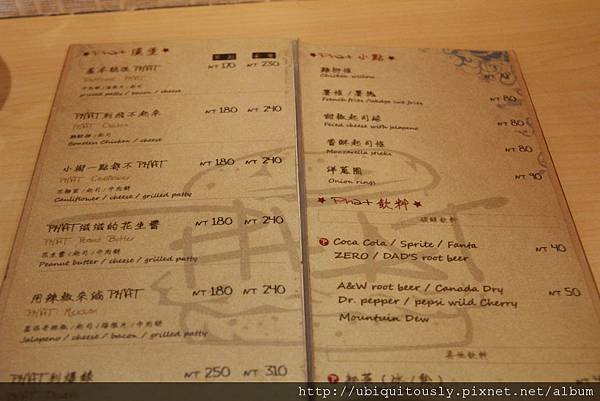 Phat 漢堡
單點 套餐
基本就很 PHAT NT 170 NT 230
grilled patty / bacon / cheese
PHAT到飛不起來 NT 180 NT 240
PHAT Chicken
Boneless Chicken / cheese
小樹一點都不 PHAT NT 180 NT 240
PHAT Cauliflower
花椰菜/起司/牛肉餅
Cauliflower / cheese / grilled patty
PHAT滋滋的花生醬 NT 180 NT 240
PHAT Peanut Butter
花生醬/起司/牛肉餅
Peanut butter / cheese / grilled patty
用辣椒來滿 PHAT NT 180 NT 240
PHAT Mexican
Jalapeno / cheese / bacon / grilled patty
NT 250 NT 310
Phat 小點
雞柳條
Chicken
薯條/薯塊 NT 80
French fries /
甜椒起司球 NT 80
Fried cheese with jalapeno
香酥起司條 NT 80
Mozzarella sticks
洋蔥圈 NT 90
Onion rings
Phat 飲料
碳酸飲料
Coca Cola / Sprite / Fanta NT 40
ZERO / DAD'S root beer
A&W root beer / Canada Dry NT 50
Dr. pepper / pepsi wild Cherry
Mountain Dew
其他飲料
http://ubiquitously.pixnet.net/album